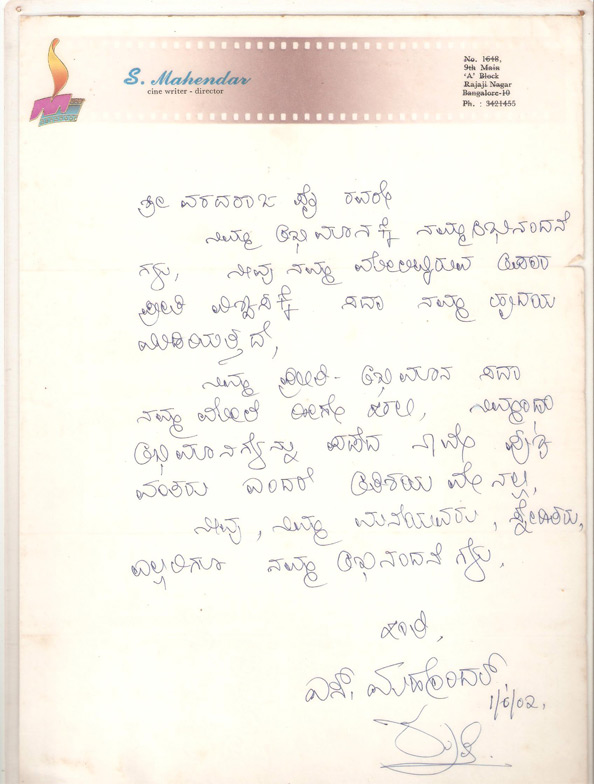 S. Mahendar
cine writer - director
No. 1648,
9th Main
'A' Block
Rajaji Nagar
Bangalore-10
Ph. : 3421455
ಶ್ರೀ ವರದರಾಜ ಪೈ ರವರೇ
ನಿಮ್ಮ ಅಭಿಮಾನಕ್ಕೆ ನಮ್ಮ ಅಭಿನಂದನೆ
ಗಳು, ನೀವು ನಮ್ಮ ಮೇಲಿಟ್ಟಿರುವ ಅಪಾರ
ಪ್ರೀತಿ ವಿಶ್ವಾಸಕ್ಕೆ ಸದಾ ನಮ್ಮ ಹೃದಯ
ಮಿಡಿಯುತ್ತಿದೆ,
ನಿಮ್ಮ ಪ್ರೀತಿ - ಅಭಿಮಾನ ಸದಾ
ನಮ್ಮ ಮೇಲೆ ಹೀಗೇ ಇರಲಿ, ನಿಮ್ಮಂಥಾ
ಅಭಿಮಾನಿಗಳನ್ನು ಪಡೆದ ನಾವೇ ಪುಣ್ಯ
ವಂತರು ಎಂದರೆ ಅತಿಶಯವೇನಲ್ಲ,
ನೀವು, ನಿಮ್ಮ ಮನೆಯವರು, ಸ್ನೇಹಿತರು,
ಎಲ್ಲರಿಗೂ ನಮ್ಮ ಅಭಿನಂದನೆಗಳು,
ಇಂತಿ,
ಎಸ್. ಮಹೇಂದರ್,
1/6/02,
ಶ್ರುತಿ.